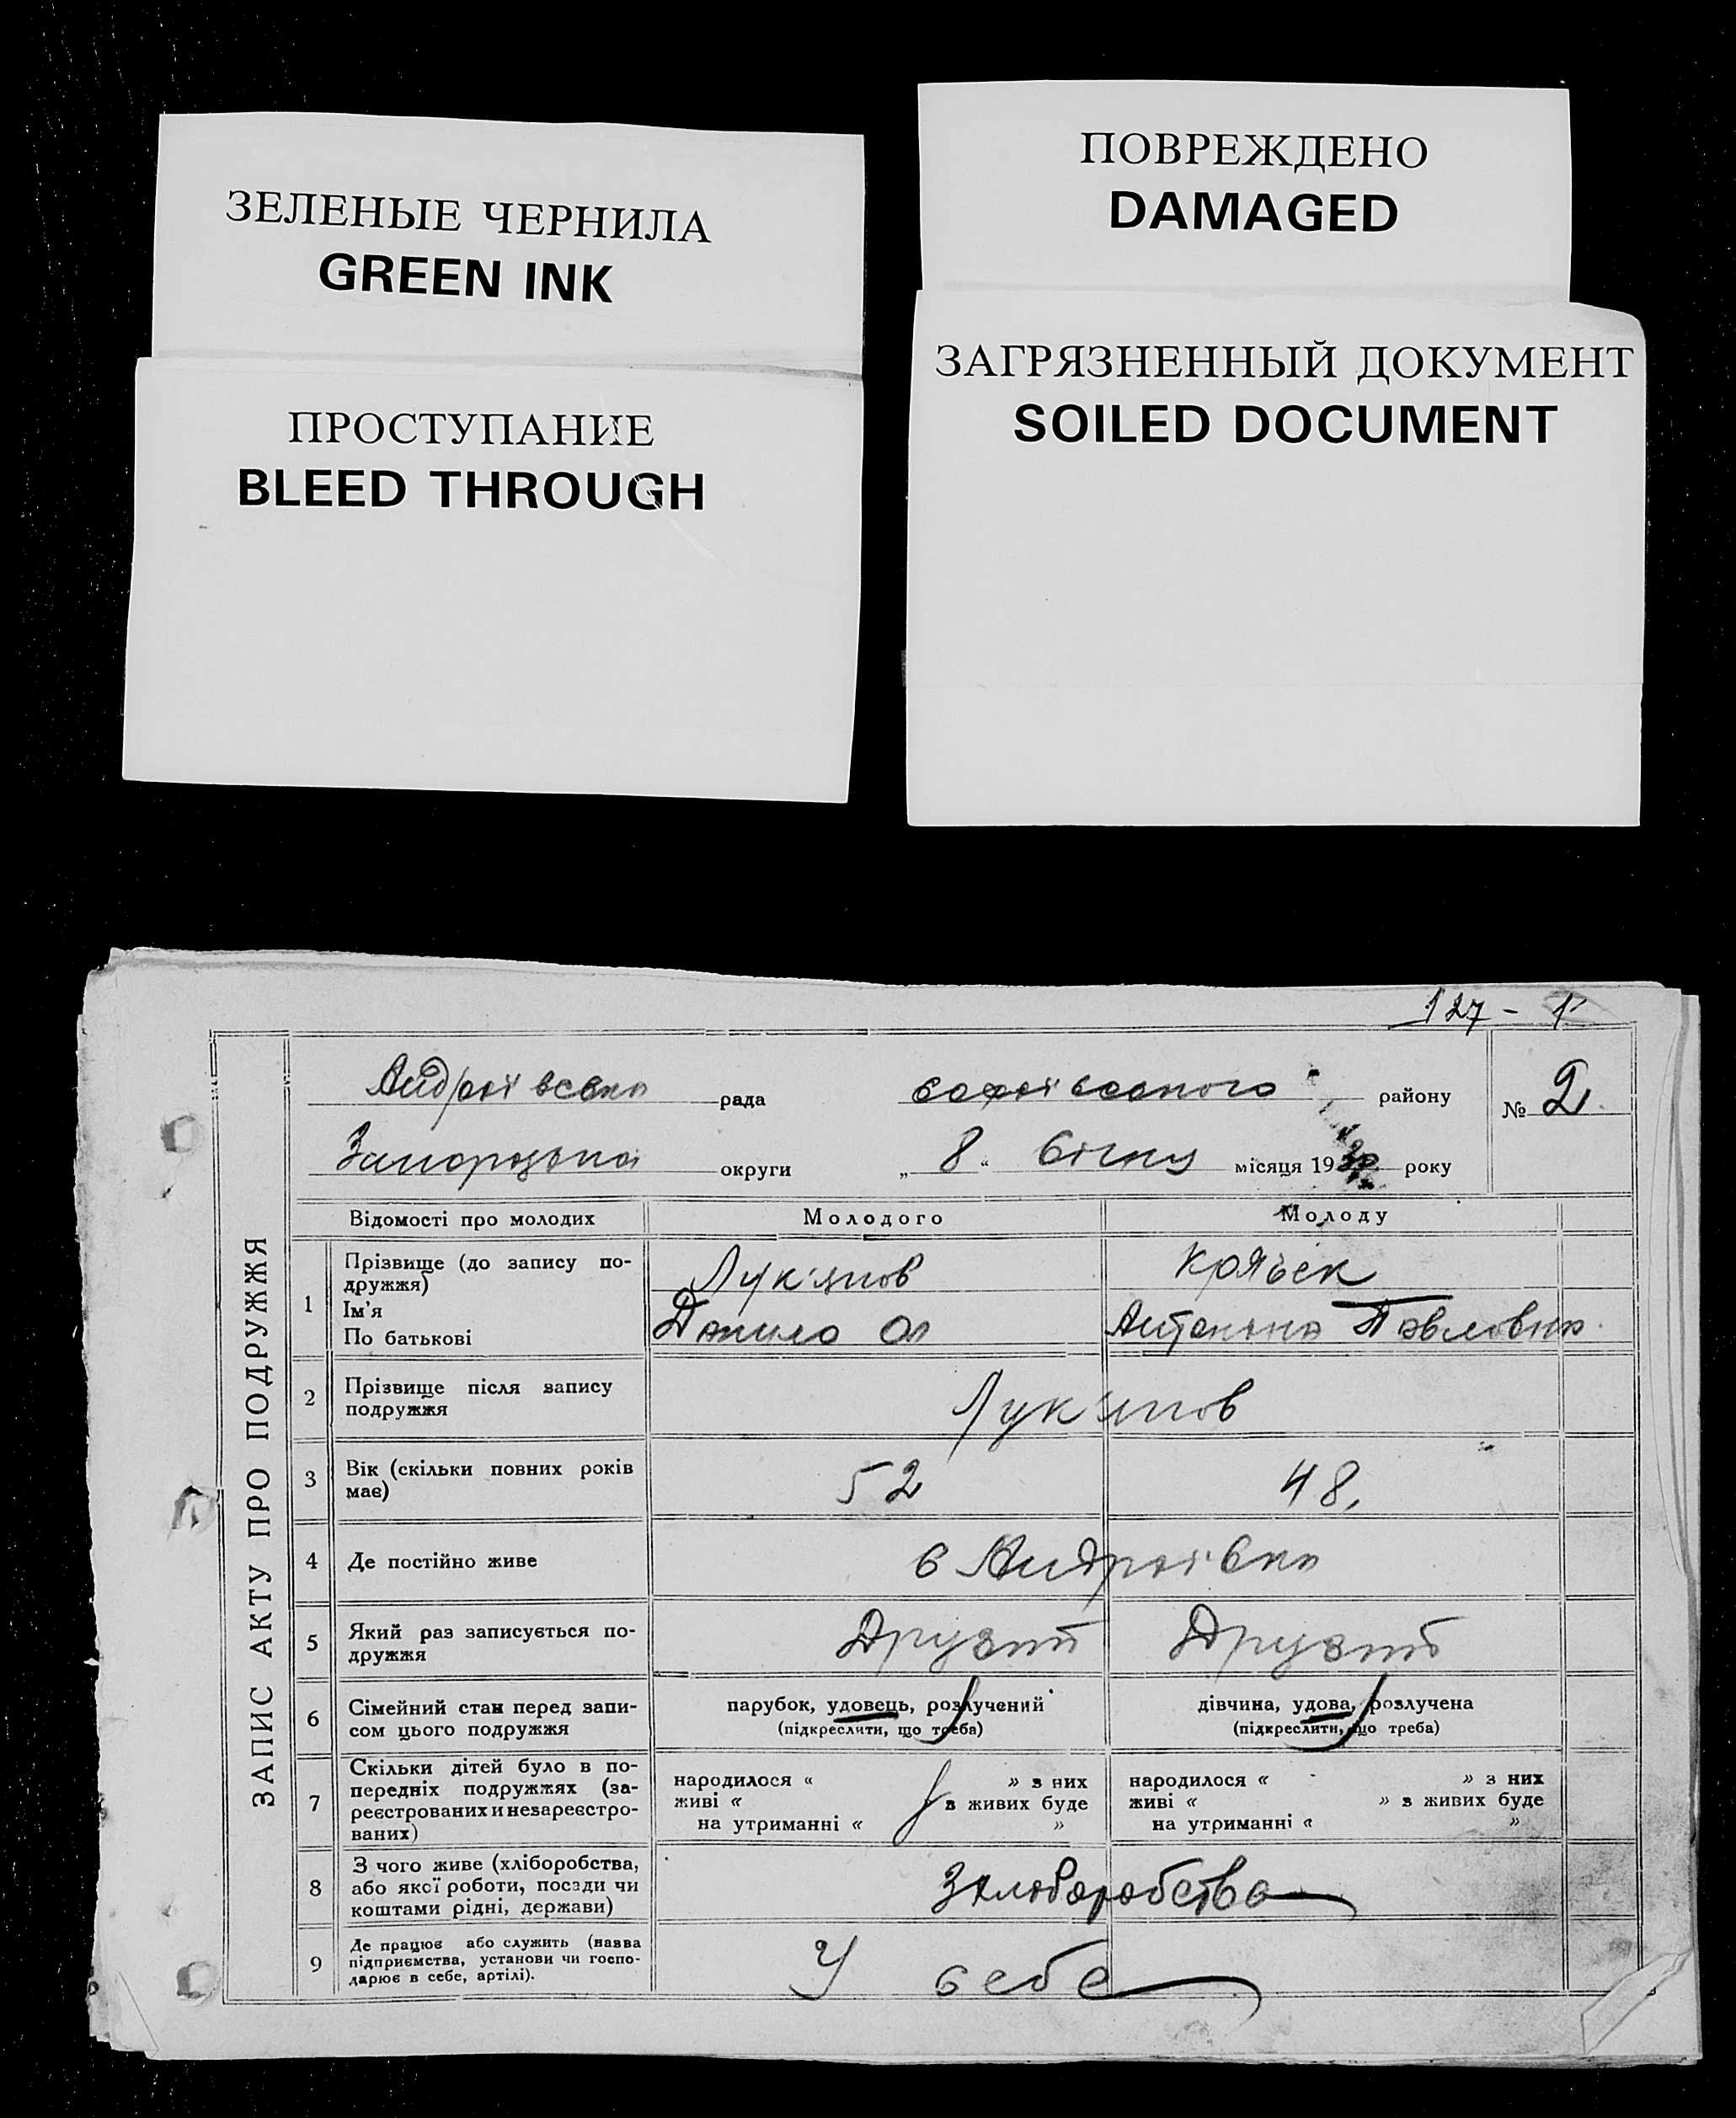 ЗЕЛЕНЫЕ ЧЕРНИЛА
GREEN INK
ПРОСТУПАНИЕ
BLEED THROUGH
ПОВРЕЖДЕНО
DAMAGED
ЗАГРЯЗНЕННЫЙ ДОКУМЕНТ
SOILED DOCUMENT
127 - 1
ЗАПИС АКТУ ПРО ПОДРУЖЖЯ
рада району № 2
округи „ 8 “ Січня місяця 1930 року
Відомості про молодих Молодого Молоду
1 Прізвище (до запису по-
дружжя) Лук'янов
Ім'я
По батькові Данило Павловна
2 Прізвище після запису
подружжя Лук'янов
3 Вік (скільки повних років
має) 52 48.
4 Де постійно живе с Андріївка
5 Який раз записується по-
дружжя Другий Другий
6 Сімейний стан перед запи-
сом цього подружжя
парубок, удовець, розлучений
(підкреслити, що треба)
дівчина, удова, розлучена
(підкреслити, що треба)
7 Скільки дітей було в по-
передніх подружжях (за-
реєстрованих и незареєстро-
ваних)
народилося « » з них
живі « » в живих буде
на утриманні « »
народилося « » з них
живі « » в живих буде
на утриманні « »
8 З чого живе (хліборобства,
або якої роботи, посади чи
коштами рідні, держави)
9 Де працює або служить (назва
підприємства, установи чи госпо-
дарює в себе, артілі). У себе